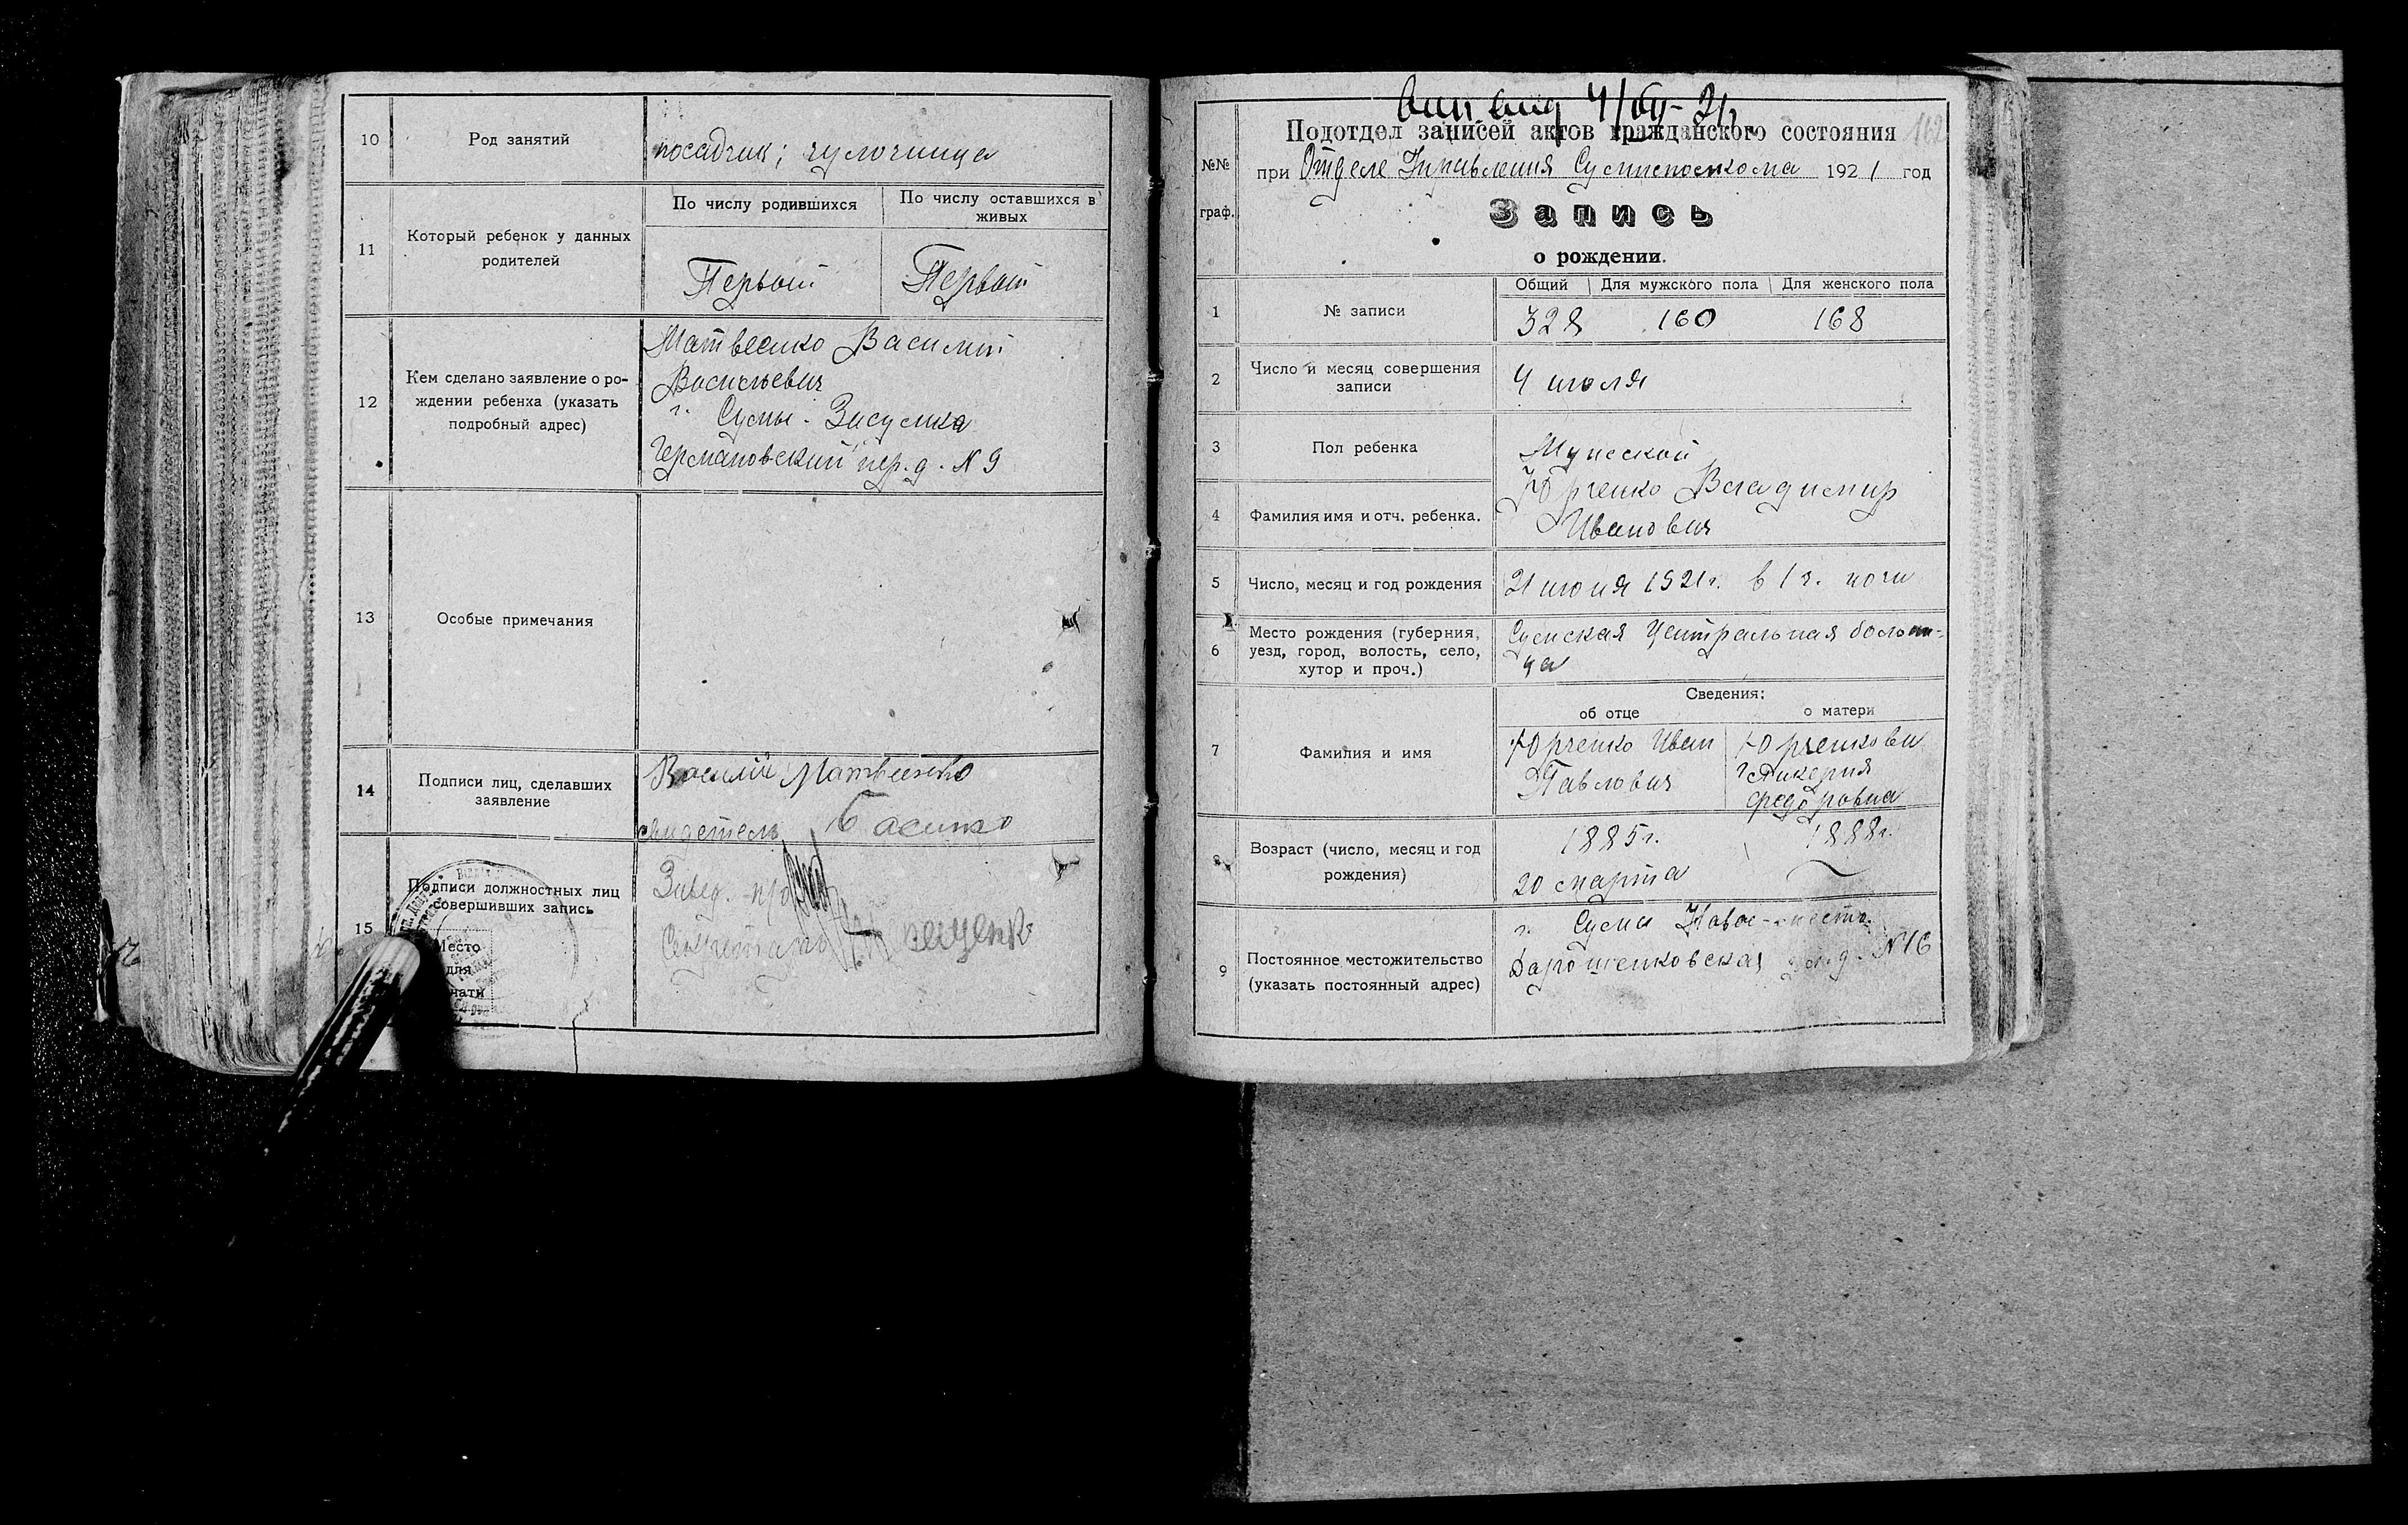 10
Род занятий
посадчик; чулочница
11
Который ребенок у данных
родителей
По числу родившихся
По числу оставшихся в
живых
Первый
Первый
12
Кем сделано заявление о ро-
ждении ребенка (указать
подробный адрес)
Матвеенко Василий
Васильевич
г. Сумы - Засумка
Германовский пер. д. N 9
13
Особые примечания
14
Подписи лиц, сделавших
заявление
Василий Матвеенко
свидетель
15
Подписи должностных лиц
совершивших запись
Место
для
чати
Завед. п/о
Секретарь
4/VII-21
162
Подотдел записей актов гражданского состояния
№№
граф.
при Отделе Управления Сумисполкома 1921 год
Запись
о рождении.
1
№ записи
Общий
Для мужского пола
Для женского пола
328
160
168
2
Число и месяц совершения
записи
4 июля
3
Пол ребенка
Мужской
4
Фамилия имя и отч. ребенка.
Юрченко Владимир
Иванович
5
Число, месяц и год рождения
21 июня 1921 г. в 1 ч. ночи
6
Место рождения (губерния,
уезд, город, волость, село,
хутор и проч.)
Сумская Центральная больни-
ца
Сведения:
об отце
о матери
7
Фамилия и имя
Юрченко Иван
Павлович
Юрченкова
Гликерия
Федоровна
8
Возраст (число, месяц и год
рождения)
1885 г.
20 марта
1888 г.
9
Постоянное местожительство
(указать постоянный адрес)
г. Сумы Новое-место
Дорошенковская д. N 16